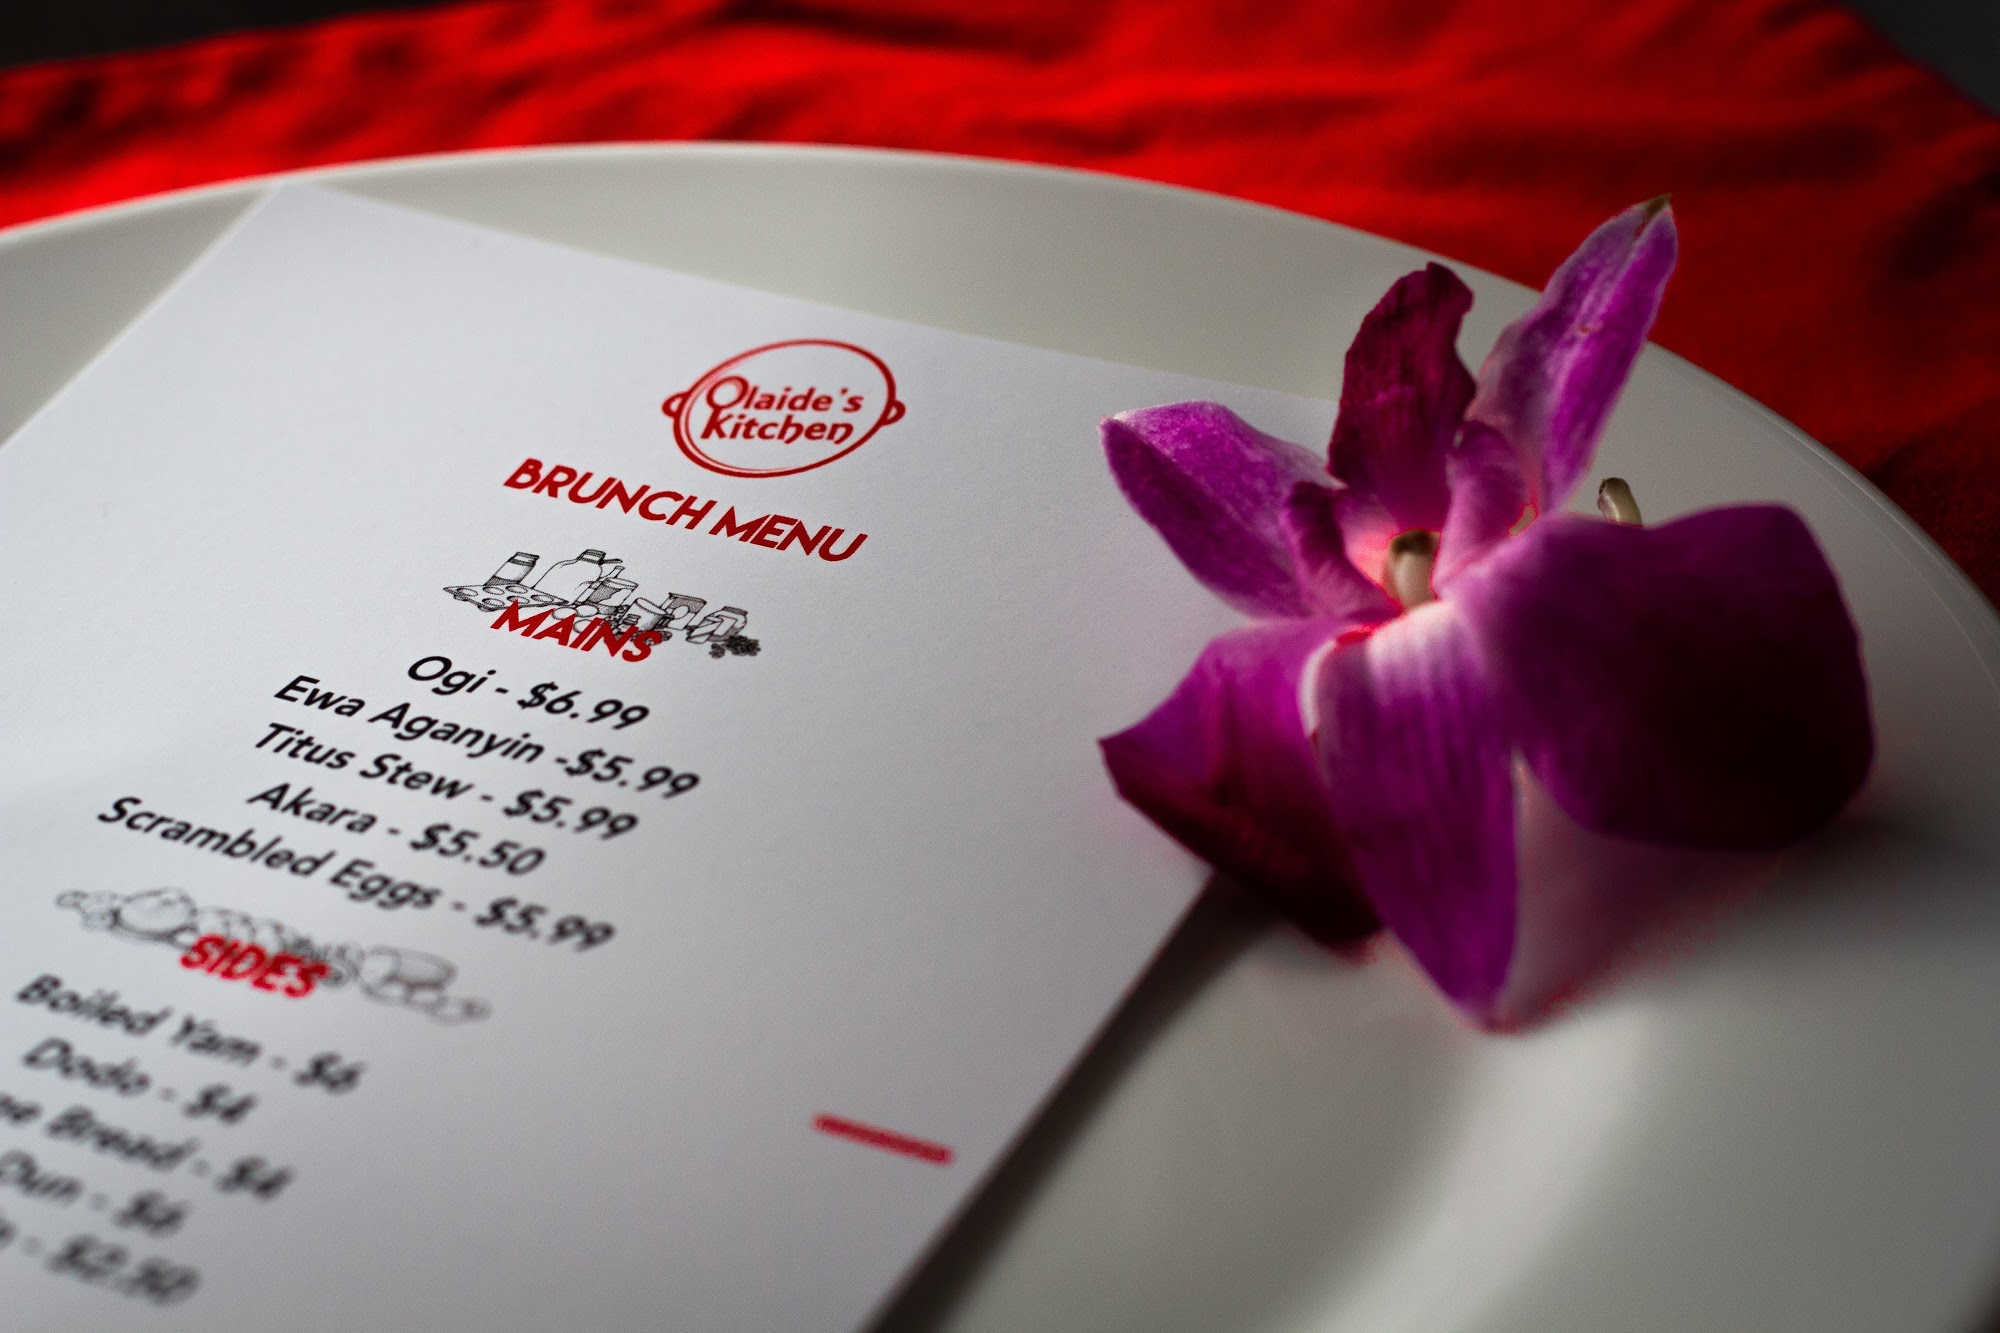 Olaide's
Kitchen
BRUNCH MENU
MAINS
Ogi - $6.99
Ewa Aganyin -$5.99
Titus Stew - $5.99
Akara - $5.50
Scrambled Eggs - $5.99
SIDES
Boiled Yam - $6
Dodo - $4
Bread - $4
Dun - $6
- $2.50